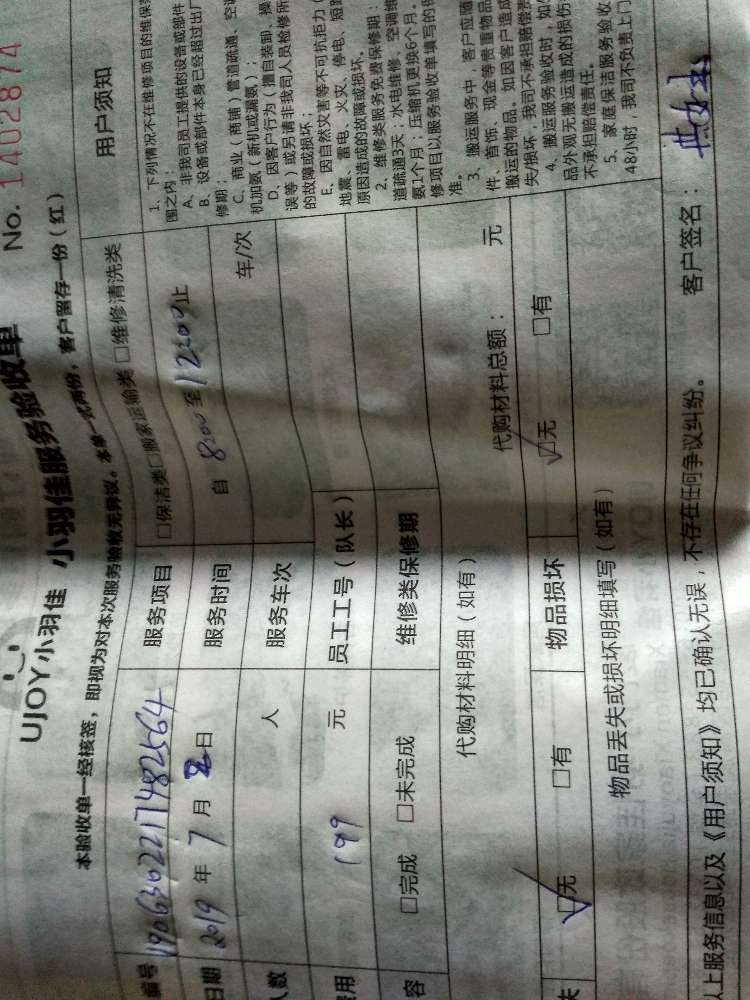 UJOY小羽佳 小羽佳服务验收单 No. 1402874
本验收单一经核签，即视为对本次服务验收无异议。本单一式两份，客户留存一份（红）
编号 1906302217482564 服务项目 □保洁类□搬家运输类 □维修清洗类
日期 2019 年 7 月 日 服务时间 自 8:00 至 12:00 止
人数 人 服务车次 车/次
费用 199 元 员工工号（队长）
容 □完成 □未完成 维修类保修期
代购材料明细（如有） 代购材料总额： 元
失 ☑无 □有 物品损坏 ☑无 □有
物品丢失或损坏明细填写（如有）
以上服务信息以及《用户须知》均已确认无误，不存在任何争议纠纷。 客户签名：
用户须知
1、下列情况不在维修项目的维保
围之内：
A、非我司员工提供的设备或部件
B、设备或部件本身已经超过出厂
修期；
C、商业（商铺）管道疏通、空
机加氨（新机或漏氨）；
D、因客户行为（擅自装卸、操
误等）或另请非我司人员检修所
的故障或损坏；
E、因自然灾害等不可抗拒力（
地震、雷电、火灾、停电、短路
原因造成的故障或损坏。
2、维修类服务免费保修期：
道疏通3天；水电维修、空调维
氨1个月；压缩机更换6个月。
修项目以服务验收单填写的
准。
3、搬运服务中，客户应随
件、首饰、现金等贵重物品
搬运的物品。如因客户造成
失/损坏，我司不承担赔偿责
4、搬运服务验收时，如
品外观无搬运造成的损伤
不承担赔偿责任。
5、家庭保洁服务验收
48小时，我司不负责上门